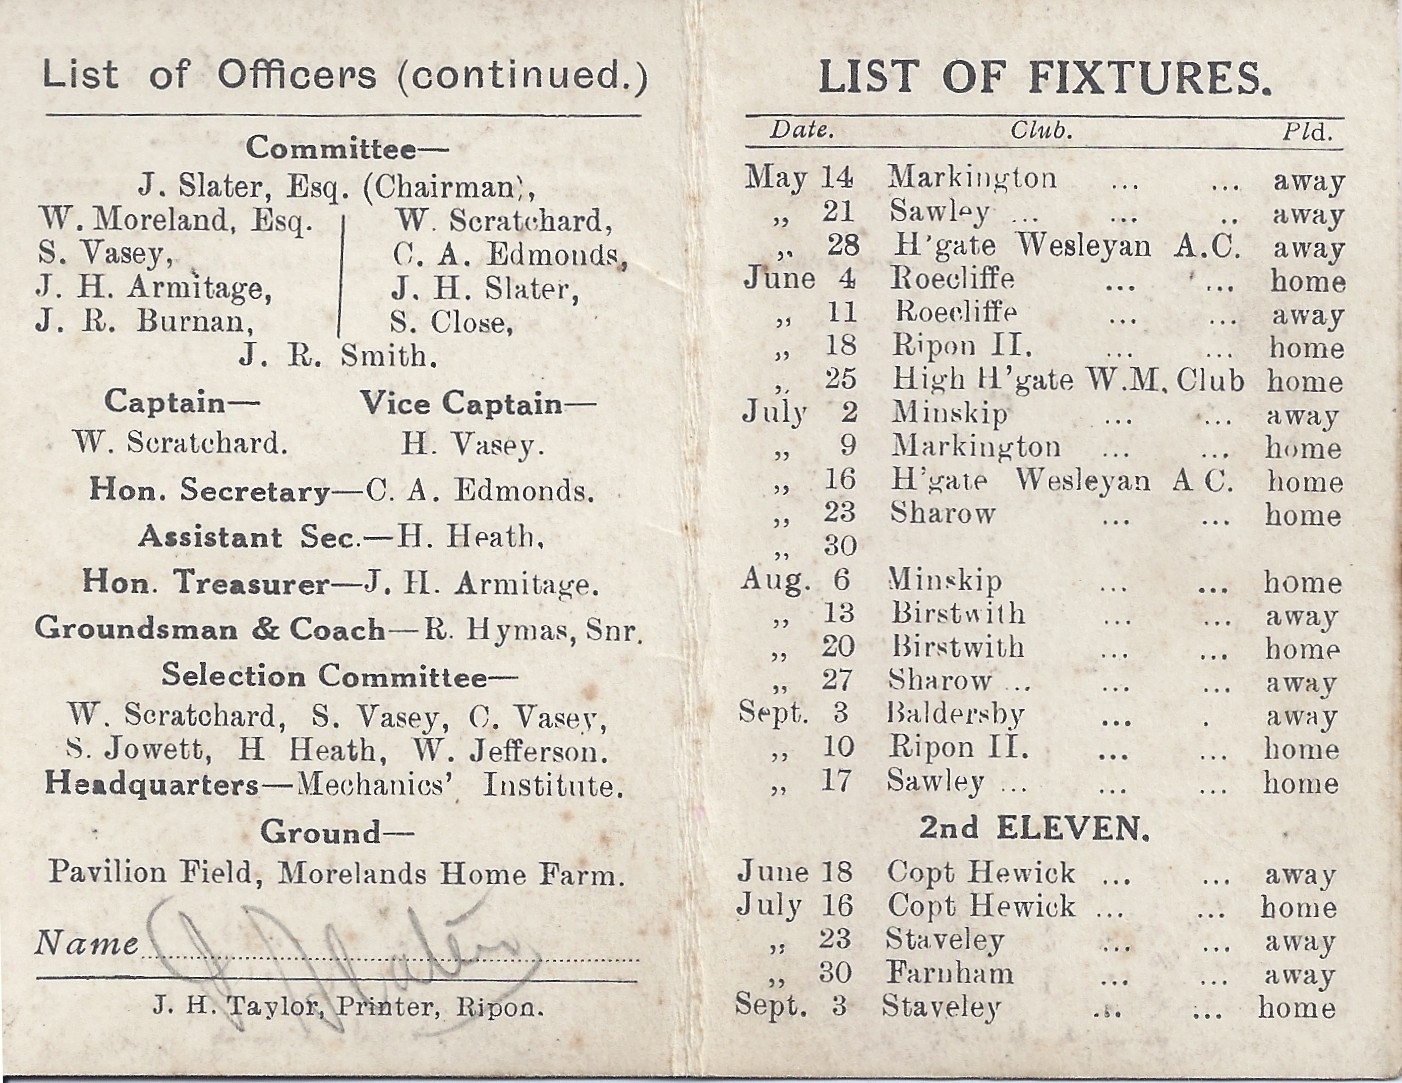 List of Officers (continued.)
Committee—
J. Slater, Esq. (Chairman),
W. Moreland, Esq. W. Scratchard,
S. Vasey, C. A. Edmonds,
J. H. Armitage, J. H. Slater,
J. R. Burnan, S. Close,
J. R. Smith.
Captain— Vice Captain—
W. Scratchard. H. Vasey.
Hon. Secretary—C. A. Edmonds.
Assistant Sec.—H. Heath,
Hon. Treasurer—J. H. Armitage.
Groundsman & Coach—R. Hymas, Snr.
Selection Committee—
W. Scratchard, S. Vasey, C. Vasey,
S. Jowett, H Heath, W. Jefferson.
Headquarters—Mechanics' Institute.
Ground—
Pavilion Field, Morelands Home Farm.
Name Slater
J. H. Taylor, Printer, Ripon.
LIST OF FIXTURES.
Date. Club. Pld.
May 14 Markington ... ... away
„ 21 Sawley ... ... .. away
„ 28 H'gate Wesleyan A.C. away
June 4 Roecliffe ... ... home
„ 11 Roecliffe ... ... away
„ 18 Ripon II. ... ... home
„ 25 High H'gate W.M. Club home
July 2 Minskip ... ... away
„ 9 Markington ... ... home
„ 16 H'gate Wesleyan A C. home
„ 23 Sharow ... ... home
„ 30
Aug. 6 Minskip ... ... home
„ 13 Birstwith ... ... away
„ 20 Birstwith ... ... home
„ 27 Sharow ... ... ... away
Sept. 3 Baldersby ... . away
„ 10 Ripon II. ... ... home
„ 17 Sawley ... ... ... home
2nd ELEVEN.
June 18 Copt Hewick ... ... away
July 16 Copt Hewick ... ... home
„ 23 Staveley ... ... away
„ 30 Farnham ... ... away
Sept. 3 Staveley ... ... home